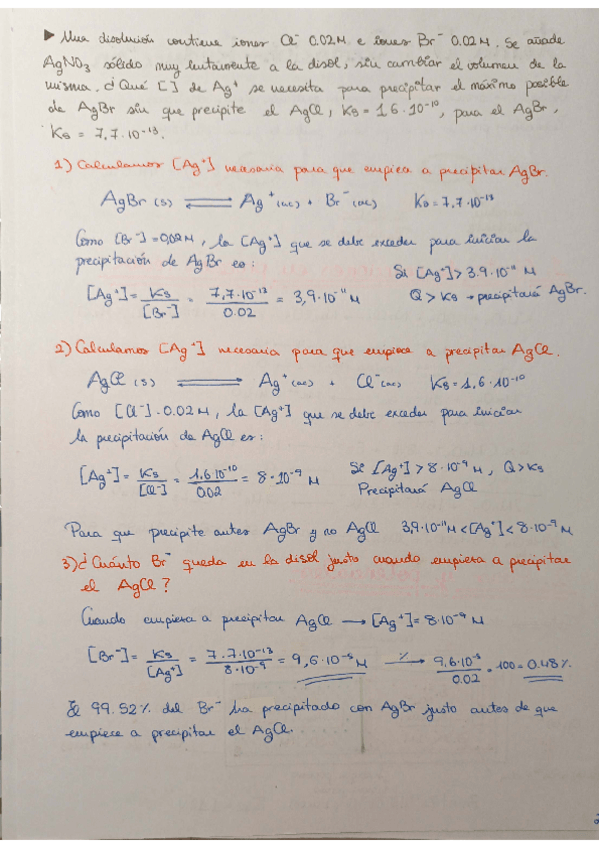 ▶ Una disolución contiene iones Cl⁻ 0.02M e iones Br⁻ 0.02M. Se añade
AgNO₃ sólido muy lentamente a la disol, sin cambiar el volumen de la
misma. ¿Qué [ ] de Ag⁺ se necesita para precipitar el máximo posible
de AgBr sin que precipite el AgCl, Ks = 1.6·10⁻¹⁰, para el AgBr,
Ks = 7,7·10⁻¹³.
1) Calculamos [Ag⁺] necesaria para que empieza a precipitar AgBr.
AgBr (s) ⇌ Ag⁺(ac) + Br⁻(ac) Ks = 7,7·10⁻¹³
Como [Br⁻] = 0,02M, la [Ag⁺] que se debe exceder para iniciar la
precipitación de AgBr es: Si [Ag⁺] > 3.9·10⁻¹¹ M
[Ag⁺] = Ks/[Br⁻] = 7,7·10⁻¹³/0.02 = 3,9·10⁻¹¹ M Q > Ks → precipitará AgBr.
2) Calculamos [Ag⁺] necesaria para que empiece a precipitar AgCl.
AgCl (s) ⇌ Ag⁺(ac) + Cl⁻(ac) Ks = 1,6·10⁻¹⁰
Como [Cl⁻]·0.02M, la [Ag⁺] que se debe exceder para iniciar
la precipitación de AgCl es:
[Ag⁺] = Ks/[Cl⁻] = 1,6·10⁻¹⁰/0.02 = 8·10⁻⁹ M Si [Ag⁺] > 8·10⁻⁹ M, Q > Ks
Precipitará AgCl
Para que precipite antes AgBr y no AgCl 3,9·10⁻¹¹ M < [Ag⁺] < 8·10⁻⁹ M
3) ¿Cuánto Br⁻ queda en la disol justo cuando empieza a precipitar
el AgCl?
Cuando empieza a precipitar AgCl → [Ag⁺] = 8·10⁻⁹ M
[Br⁻] = Ks/[Ag⁺] = 7.7·10⁻¹³/8·10⁻⁹ = 9,6·10⁻⁵ M % → 9,6·10⁻⁵/0.02 · 100 = 0.48%
El 99.52% del Br⁻ ha precipitado con AgBr justo antes de que
empiece a precipitar el AgCl.